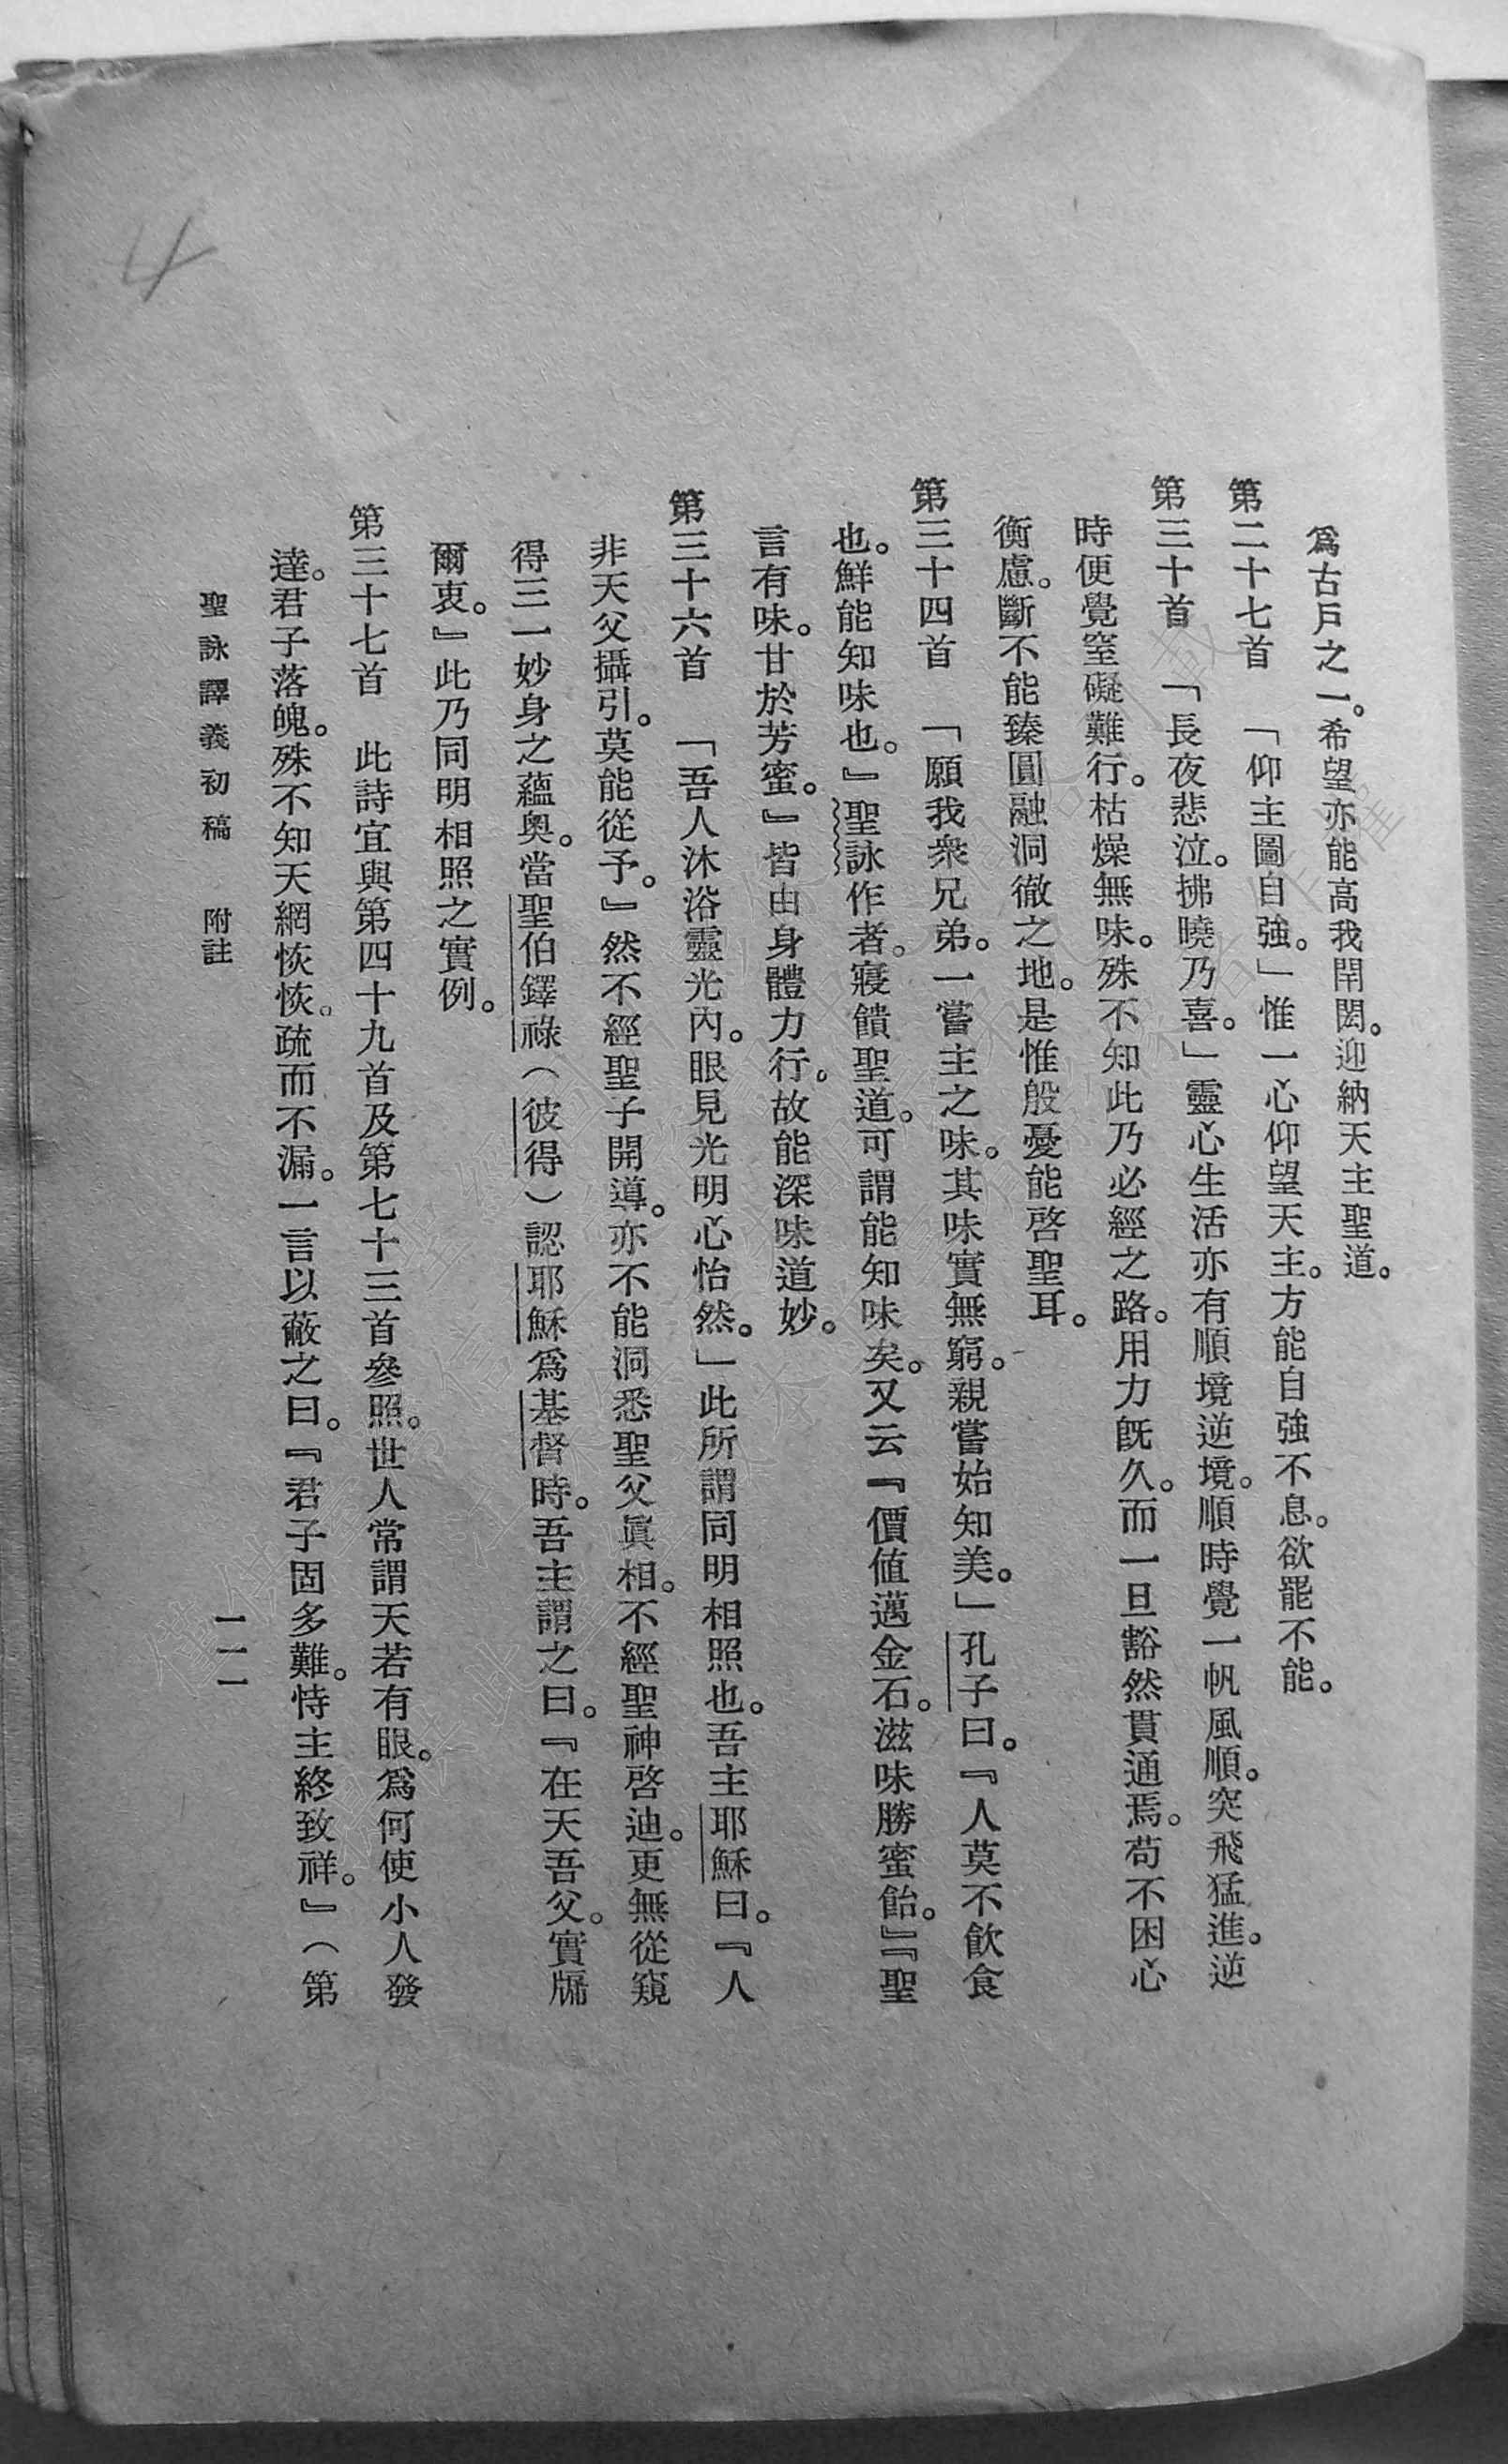 為古戶之一。希望亦能高我閈閎。迎納天主聖道。
第二十七首　「仰主圖自強。」惟一心仰望天主。方能自強不息。欲罷不能。
第三十首　「長夜悲泣。拂曉乃喜。」靈心生活亦有順境逆境。順時覺一帆風順。突飛猛進。逆
時便覺窒礙難行。枯燥無味。殊不知此乃必經之路。用力旣久。而一旦豁然貫通焉。苟不困心
衡慮。斷不能臻圓融洞徹之地。是惟般憂能啓聖耳。
第三十四首　「願我衆兄弟。一嘗主之味。其味實無窮。親嘗始知美。」孔子曰。『人莫不飲食
也。鮮能知味也。』聖詠作者。寢饋聖道。可謂能知味矣。又云『價值邁金石。滋味勝蜜飴。』『聖
言有味。甘於芳蜜。』皆由身體力行。故能深味道妙。
第三十六首　「吾人沐浴靈光內。眼見光明心怡然。」此所謂同明相照也。吾主耶穌曰。『人
非天父攝引。莫能從予。』然不經聖子開導。亦不能洞悉聖父眞相。不經聖神啓迪。更無從窺
得三一妙身之蘊奧。當聖伯鐸祿（彼得）認耶穌爲基督時。吾主謂之曰。『在天吾父。實牖
爾衷。』此乃同明相照之實例。
第三十七首　此詩宜與第四十九首及第七十三首參照。世人常謂天若有眼。爲何使小人發
達。君子落魄。殊不知天網恢恢。疏而不漏。一言以蔽之曰。『君子固多難。恃主終致祥。』（第
聖詠譯義初稿　附註　一一一
4